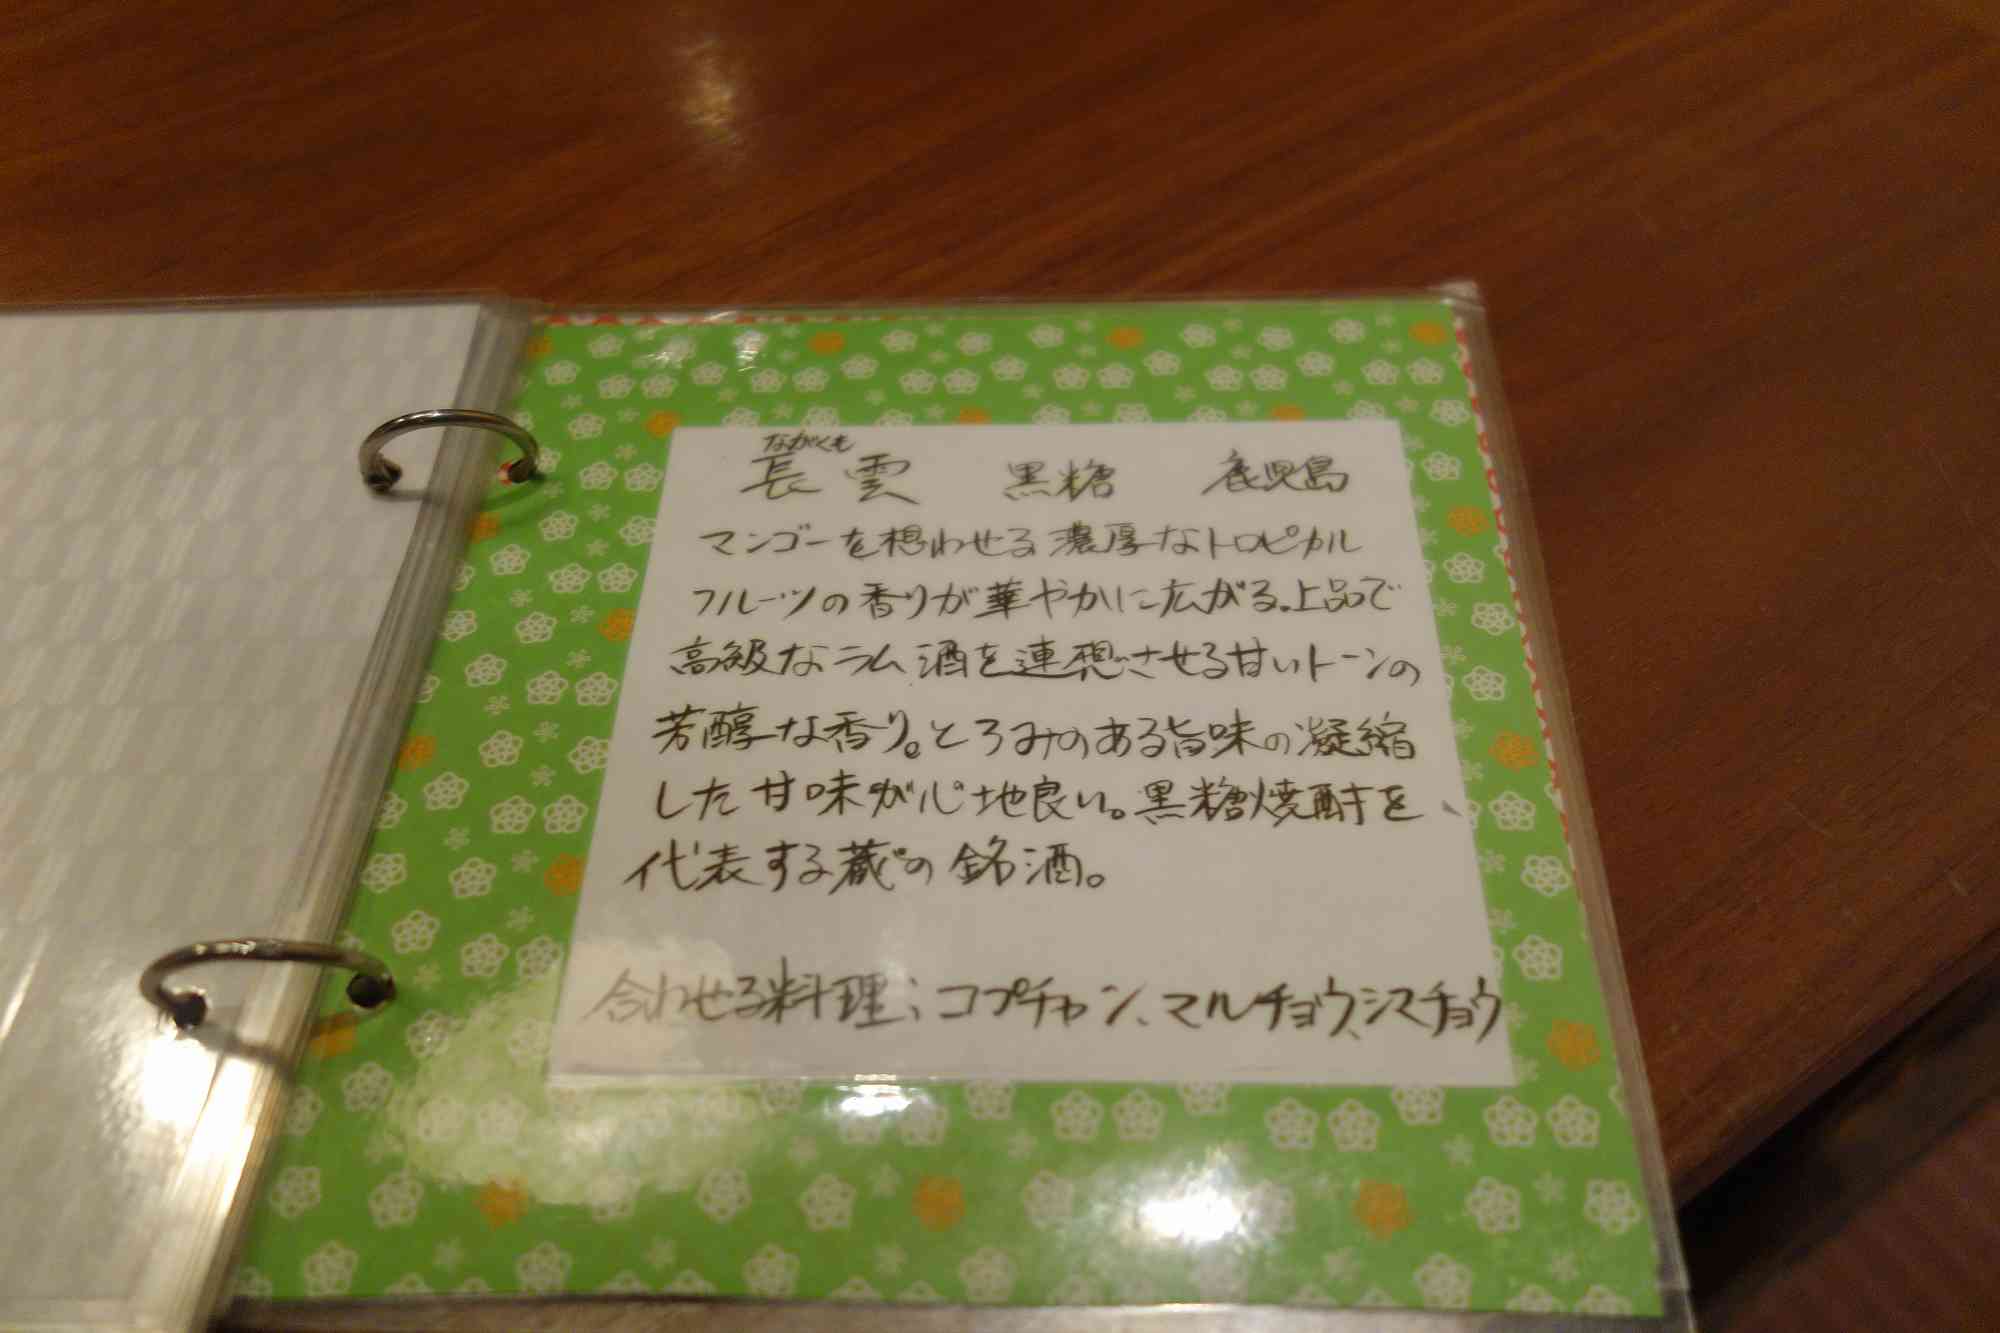 ながくも
長雲 黒糖 鹿児島
マンゴーを想わせる濃厚なトロピカル
フルーツの香りが華やかに広がる。上品で
高級なラム酒を連想させる甘いトーンの
芳醇な香り。とろみのある旨味の凝縮
した甘味が心地良い。黒糖焼酎を
代表する蔵の銘酒。
合わせる料理；コプチャン、マルチョウ、シマチョウ